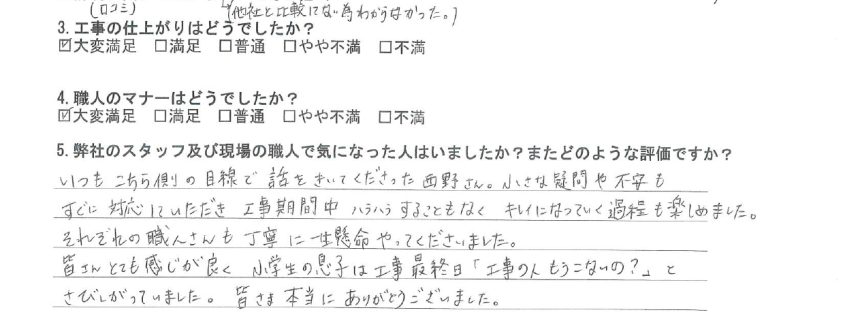 (口コミ)
(他社と比較してない為わからなかった。)
3. 工事の仕上がりはどうでしたか？
☑大変満足 □満足 □普通 □やや不満 □不満
4. 職人のマナーはどうでしたか？
☑大変満足 □満足 □普通 □やや不満 □不満
5. 弊社のスタッフ及び現場の職人で気になった人はいましたか？またどのような評価ですか？
いつも こちら側の目線で 話をきいてくださった 西野さん。小さな疑問や不安も
すぐに 対応していただき 工事期間中 ハラハラすることもなく キレイになっていく過程も楽しめました。
それぞれの職人さんも 丁寧に一生懸命 やってくださいました。
皆さんとても感じが良く 小学生の息子は工事最終日「工事の人 もうこないの？」と
さびしがっていました。皆さま 本当に ありがとうございました。